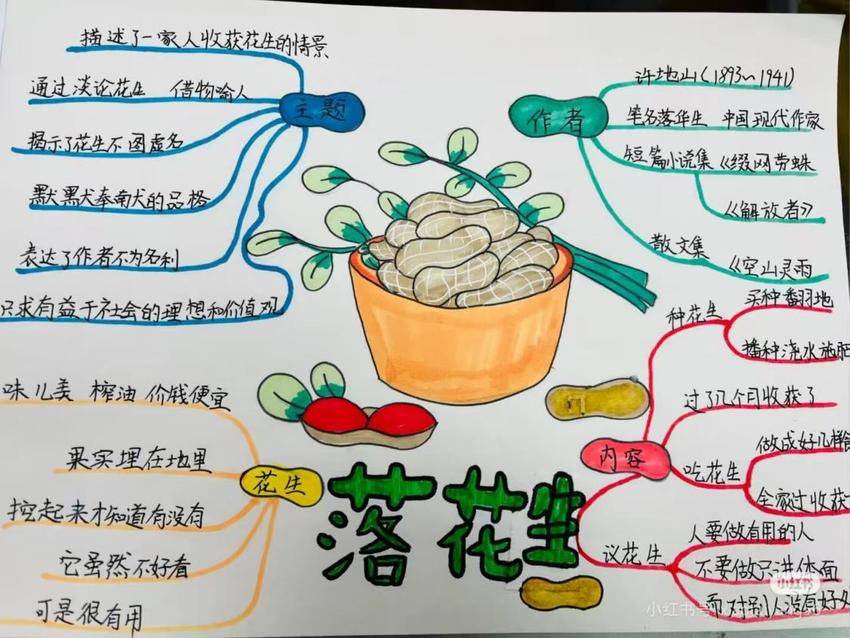 描述了一家人收获花生的情景
通过谈论花生 借物喻人
揭示了花生不图虚名
默默奉献的品格
表达了作者不为名利
只求有益于社会的理想和价值观
主题
作者
许地山(1893~1941)
笔名落华生 中国现代作家
短篇小说集《缀网劳蛛
《解放者》
散文集
《空山灵雨
味儿美 榨油 价钱便宜
果实埋在地里
挖起来才知道有没有
它虽然不好看
可是很有用
花生
落花生
内容
种花生
买种翻地
播种浇水施肥
过了几个月收获了
吃花生
做成好几样
全家过收获
议花生
人要做有用的人
不要做只讲体面
而对别人没有好
小红书
小红书号